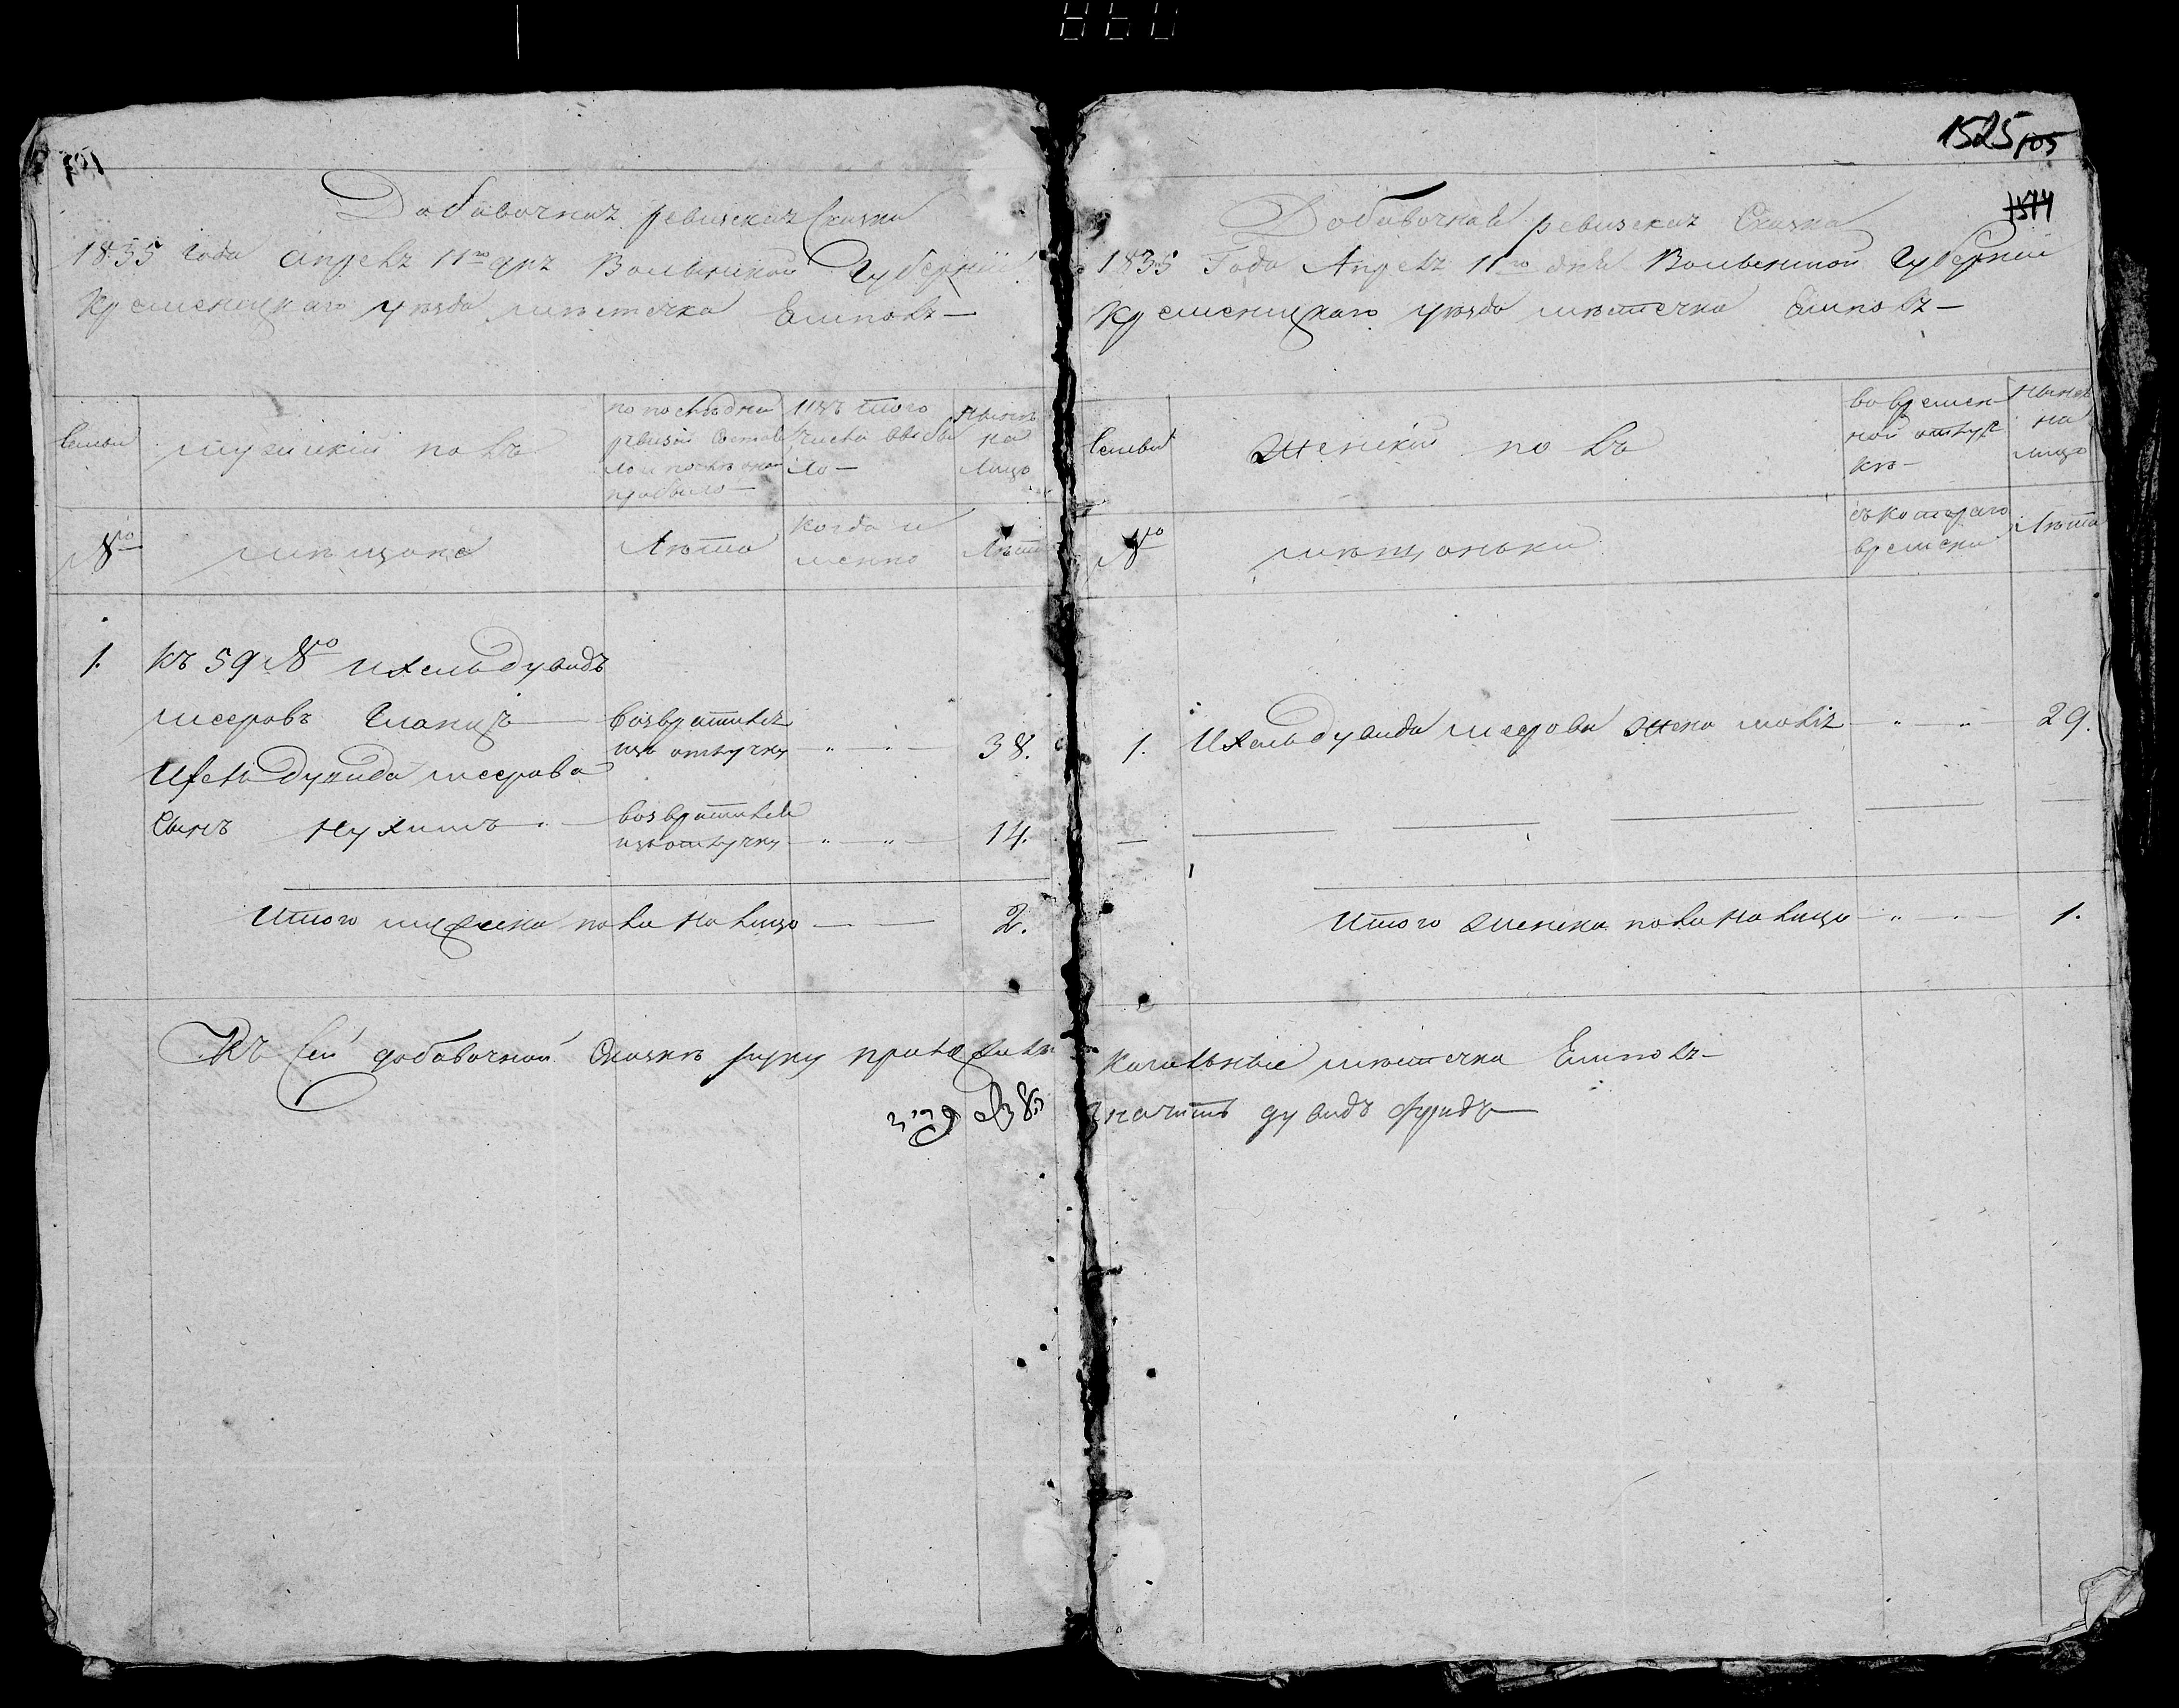 Добавочная ревизская Сказка
1835 года апреля 11го дня Волынской Губернии
Кременецкаго уезда местечка Ямполя—
Семьи
мужеский полъ
по последней
ревизии состоя
ло и после оной
прибыло
изъ того
числа выбы
ло—
Ныне
на
лицо
№
мещане
Лета
когда и
менно
Лета
1. къ 59 № Ихель Дувидъ
возвратился
изъ отлучки 38.
Ихель Дувида
Сынъ Нухимъ
возвратился
изъ отлучки 14.
Итого мужеска пола на лицо 2.
Къ сей добавочной Сказке руку приложили
1525 105
1574
Добавочная ревизская Сказка
1835 Года Апреля 11го дня Волынской Губернии
Кременецкаго уезда местечка Ямполя—
Семьи
Женский полъ
во времен-
ной отлуч
ке—
Ныне
на
лицо
№
мещанки
съ котораго
времени
Лета
1. Ихель Дувида жена 29.
Итого женска пола на лицо 1.
Кагальные местечка Ямполя—
значитъ Дувидъ